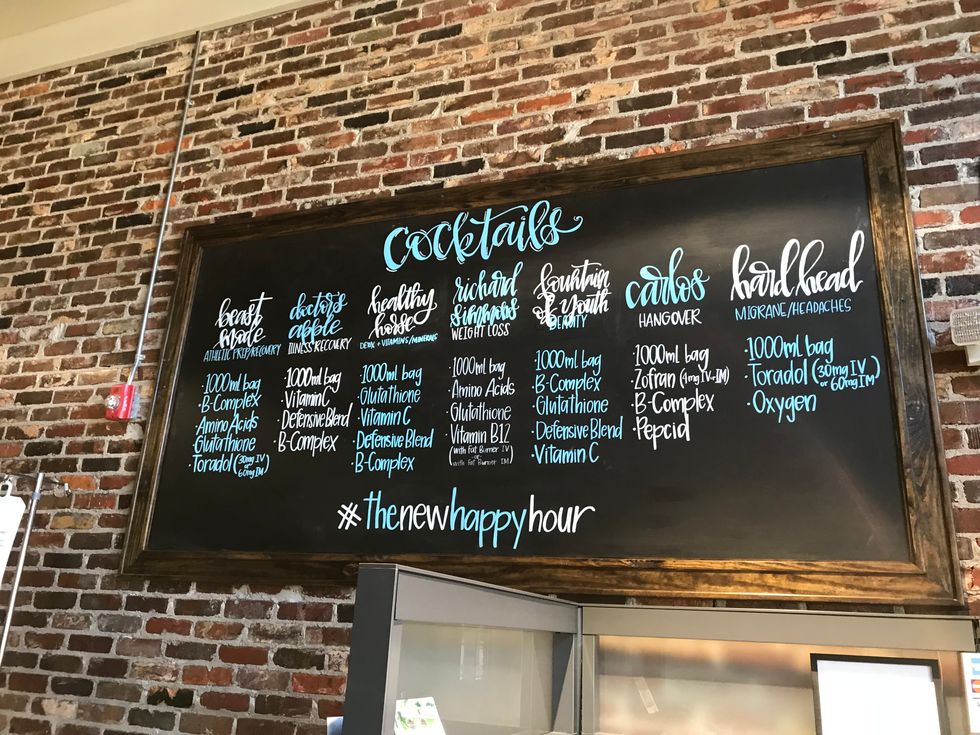 cocktails
beast
mode
ATHLETIC PREP/RECOVERY
·1000ml bag
·B-Complex
·Amino Acids
·Glutathione
·Toradol (30mg IV or 60mg IM)
doctors
apple
ILLNESS RECOVERY
·1000ml bag
·Vitamin C
·Defensive Blend
·B-Complex
healthy
horse
DETOX + VITAMINS/MINERALS
·1000ml bag
·Glutathione
·Vitamin C
·Defensive Blend
·B-Complex
richard
simmons
WEIGHT LOSS
·1000ml bag
·Amino Acids
·Glutathione
·Vitamin B12
(with Fat Burner IV
or
with Fat Burner IM)
fountain
of youth
BEAUTY
·1000ml bag
·B-Complex
·Glutathione
·Defensive Blend
·Vitamin C
carlos
HANGOVER
·1000ml bag
·Zofran (4mg IV-IM)
·B-Complex
·Pepcid
hard head
MIGRANE/HEADACHES
·1000ml bag
·Toradol (30mg IV or 60mg IM)
·Oxygen
#thenewhappyhour